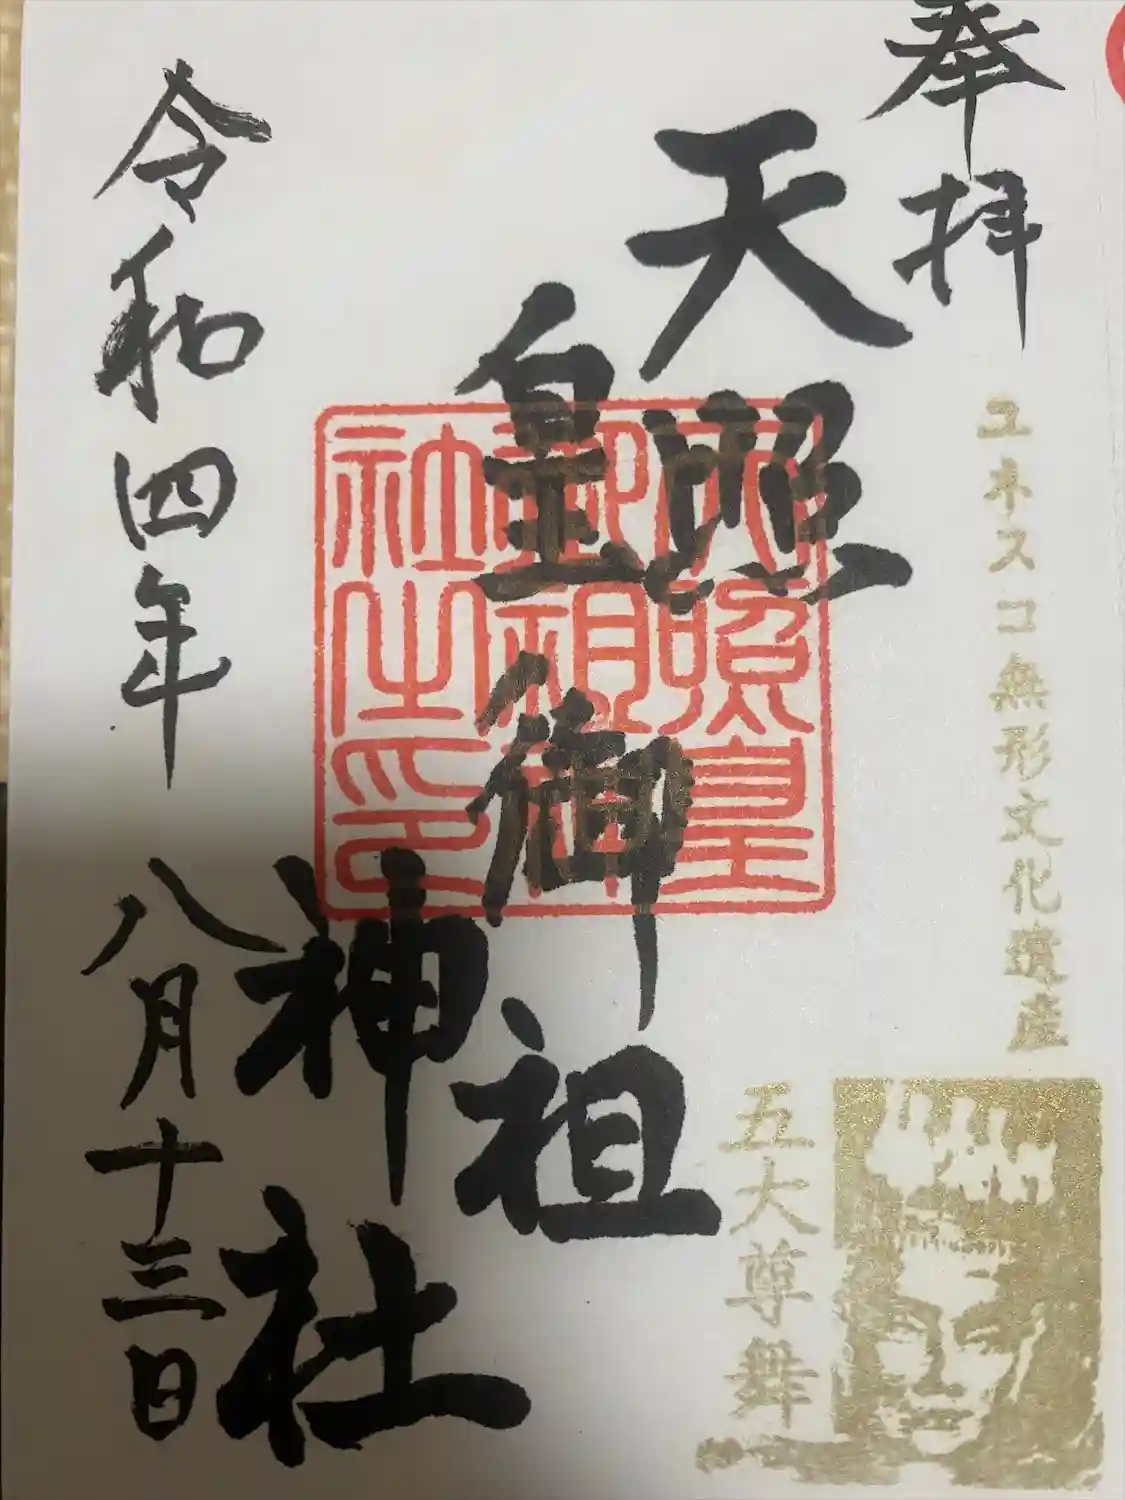 奉拝
ユネスコ無形文化遺産
五大尊舞
天照
皇御祖
神社
天照皇
御祖神
社之印
令和四年八月十三日